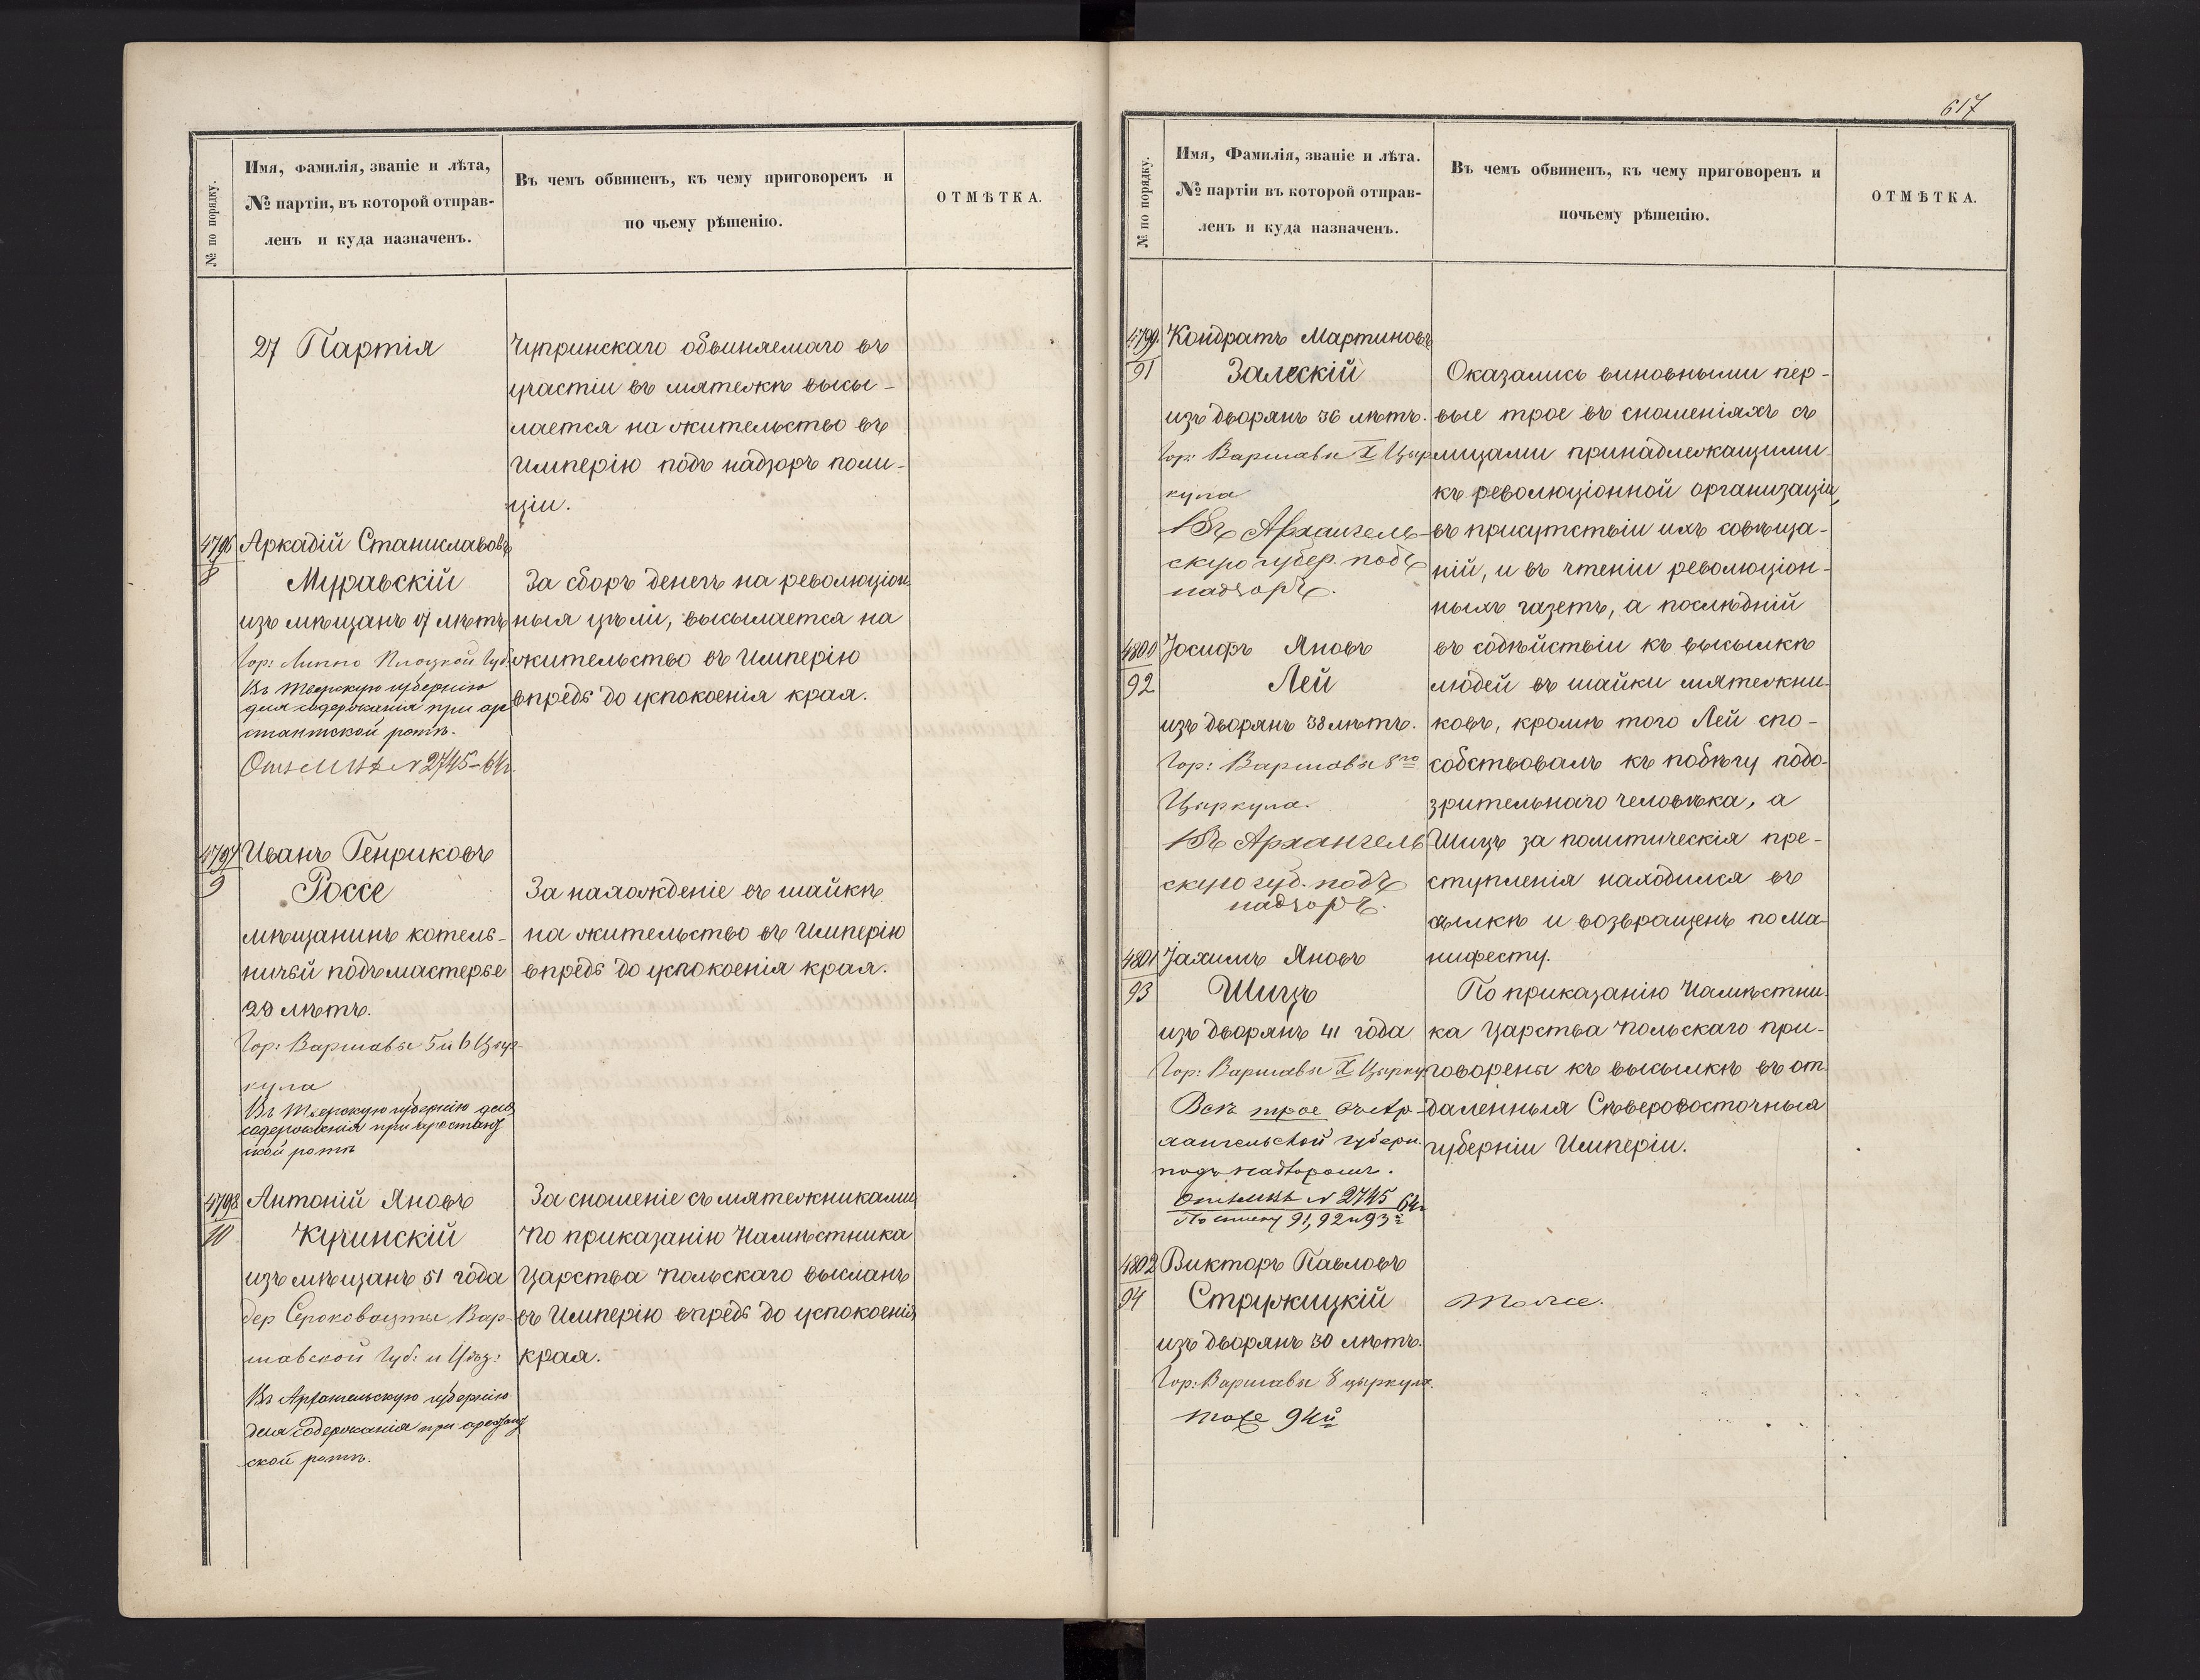 617
№ по порядку.
Имя, Фамилія, званіе и лѣта,
№ партіи, въ которой отправ-
ленъ и куда назначенъ.
Въ чемъ обвиненъ, къ чему приговоренъ и
по чьему рѣшенію.
ОТМѢТКА.
27 Партія
Чупринскаго обвиняемаго въ
участіи въ мятежѣ высы-
лается на жительство въ
Имперію подъ надзоръ поли-
ціи.
4796
8
Аркадій Станиславовъ
Муравскій
изъ мѣщанъ 17 лѣтъ
Гор: Липно Плоцкой Губ.
Въ Тверскую губернію
для содержанія при аре
стантской ротѣ.
№ 2745-64г.
За сборъ денегъ на революціон
ныя цѣли, высылается на
жительство въ Имперію
впредь до успокоенія края.
4797
9
Иванъ Генриковъ
Россе
мѣщанинъ котель-
ничьй подъмастерье
29 лѣтъ.
Гор: Варшавы 5 и 6 Цыр-
кула
Въ Тверскую губернію для
содержанія при арестант
ской ротѣ
За нахожденіе въ шайкѣ
на жительство въ Имперію
впредь до успокоенія края.
4798
10
Антоній Яновъ
Кучинскій
изъ мѣщанъ 51 года
дер Вар-
шавской Губ: и Уѣз:
Въ Архангельскую губернію
для содержанія при арестант
ской ротѣ.
За сношеніе съ мятежниками
По приказанію Намѣстника
Царства Польскаго высланъ
въ Имперію впредь до успокоенія
края.
№ по порядку.
Имя, Фамилія, званіе и лѣта.
№ партіи въ которой отправ-
ленъ и куда назначенъ.
Въ чемъ обвиненъ, къ чему приговоренъ и
почьему рѣшенію.
ОТМѢТКА.
4799.
91
Кондратъ Мартиновъ
Залескій
изъ дворянъ 36 лѣтъ.
Гор: Варшавы X Цыр
кула
Въ Архангель-
скую губер. подъ
надзоръ.
4800
92
Іосифъ Яновъ
Лей
изъ дворянъ 38 лѣтъ.
Гор: Варшавы 8го
Цыркула.
Въ Архангель
скую губ. подъ
надзоръ.
4801
93
Іахимъ Яновъ
Шицъ
изъ дворянъ 41 года
Гор: Варшавы X Цырку
Всѣ трое въ Ар-
хангельской губерн.
подъ надзоромъ.
№ 2745 64г
По списку 91, 92 и 93й
Оказались виновными пер-
вые трое въ сношеніяхъ съ
лицами принадлежащими
къ революціонной организаціи,
въ присутствіи ихъ совѣща-
ній, и въ чтеніи революціон-
ныхъ газетъ, а послѣдній
въ содѣйствіи къ высылкѣ
людей въ шайки мятежни-
ковъ, кромѣ того Лей спо-
собствовалъ къ побѣгу подо-
зрительнаго человѣка, а
Шицъ за политическія пре-
ступленія находился въ
ссылкѣ и возвращенъ по Ма-
нифесту.
По приказанію Намѣстни-
ка Царства Польскаго при-
говорены къ высылкѣ въ от-
даленныя Сѣверовосточныя
губерніи Имперіи.
4802
94
Викторъ Павловъ
Стружицкій
изъ дворянъ 30 лѣтъ.
Гор: Варшавы 8 цыркула.
тоже 94й
Тоже.